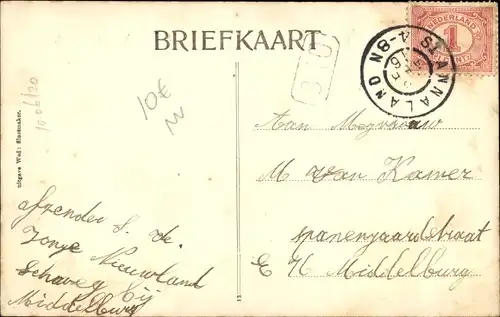 BRIEFKAART
NEDERLAND
1
CENT
ST ANNALAND
4-8N
10€
10 06/20
uitgave Wed: Slaetmaker.
Aan Mejvrouw
M van Kamer
spanenjaardstraat
E 71 Middelburg
afzender S. de
Jonge Nieuwland
Schaweg bij
Middelburg